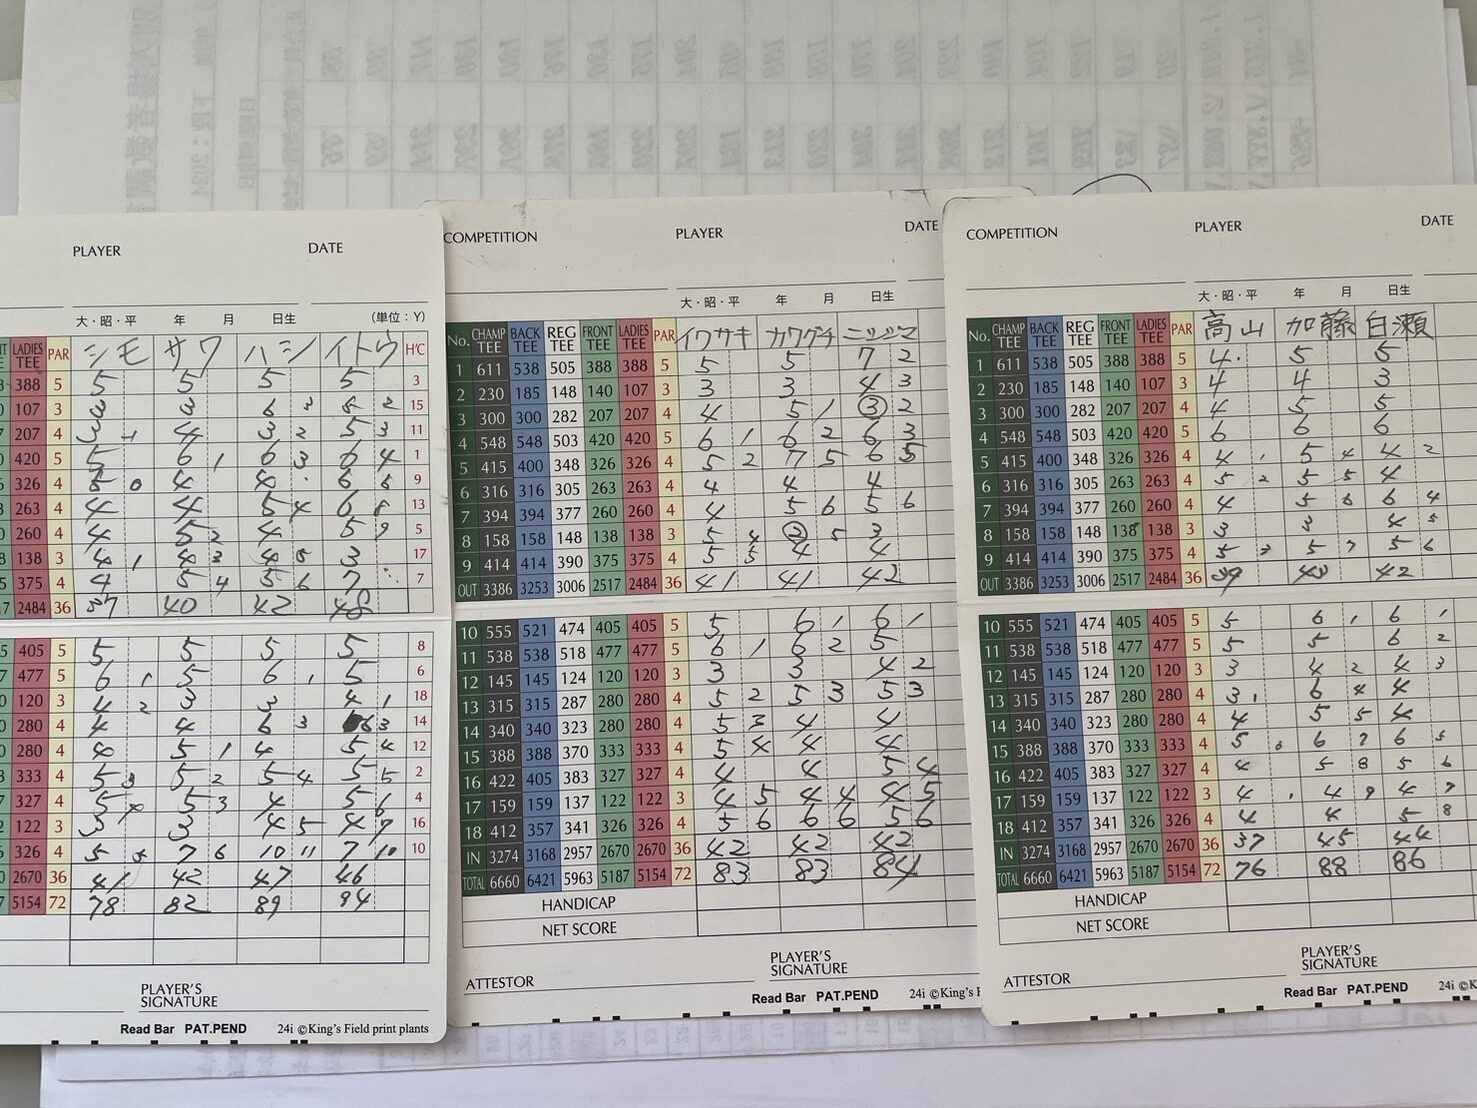 PLAYER DATE
大・昭・平 年 月 日生 (単位：Y)
LADIES TEE PAR シモ サワ ハシ イトウ H'C
388 5 5 5 5 5 3
107 3 3 3 6 2 5 2 15
207 4 3 -1 4 3 2 5 3 11
420 5 5 6 1 6 3 6 4 1
326 4 5 0 4 4 6 6 9
263 4 4 4 5 4 6 8 13
260 4 4 5 2 4 5 9 5
138 3 4 1 4 3 4 5 3 17
375 4 4 5 4 5 6 7 7
2484 36 37 40 42 48
405 5 5 5 5 5 8
477 5 6 1 5 6 1 5 6
120 3 4 2 3 3 4 1 18
280 4 4 4 6 3 6 3 14
280 4 4 5 1 4 5 4 12
333 4 5 3 5 2 5 4 5 5 2
327 4 5 4 5 3 4 5 6 4
122 3 3 3 4 5 4 7 16
326 4 5 5 7 6 10 11 7 10 10
2670 36 41 42 47 46
5154 72 78 82 89 94
PLAYER'S
SIGNATURE
Read Bar PAT.PEND 24i ©King's Field print plants
COMPETITION PLAYER DATE
大・昭・平 年 月 日生
No. CHAMP TEE BACK TEE REG TEE FRONT TEE LADIES TEE PAR イワサキ カワグチ ニシジマ
1 611 538 505 388 388 5 5 5 7 2
2 230 185 148 140 107 3 3 3 4 3
3 300 300 282 207 207 4 4 5 1 3 2
4 548 548 503 420 420 5 6 1 6 2 6 3
5 415 400 348 326 326 4 5 2 7 5 6 5
6 316 316 305 263 263 4 4 4 4
7 394 394 377 260 260 4 4 5 6 5 6
8 158 158 148 138 138 3 5 4 2 5 3
9 414 414 390 375 375 4 5 5 4 4
OUT 3386 3253 3006 2517 2484 36 41 41 42
10 555 521 474 405 405 5 5 6 1 6 1
11 538 538 518 477 477 5 6 1 6 2 5
12 145 145 124 120 120 3 3 3 4 2
13 315 315 287 280 280 4 5 2 5 3 5 3
14 340 340 323 280 280 4 5 3 4 4
15 388 388 370 333 333 4 5 4 4 4
16 422 405 383 327 327 4 4 4 5 4
17 159 159 137 122 122 3 4 5 4 4 4 5
18 412 357 341 326 326 4 5 6 6 6 5 6
IN 3274 3168 2957 2670 2670 36 42 42 42
TOTAL 6660 6421 5963 5187 5154 72 83 83 84
HANDICAP
NET SCORE
PLAYER'S
ATTESTOR SIGNATURE
Read Bar PAT.PEND 24i ©King's F
COMPETITION PLAYER DATE
大・昭・平 年 月 日生
No. CHAMP TEE BACK TEE REG TEE FRONT TEE LADIES TEE PAR 高山 加藤 白瀬
1 611 538 505 388 388 5 4 5 5
2 230 185 148 140 107 3 4 4 3
3 300 300 282 207 207 4 4 5 5
4 548 548 503 420 420 5 6 6 6
5 415 400 348 326 326 4 4 1 5 4 4 2
6 316 316 305 263 263 4 5 2 5 5 4
7 394 394 377 260 260 4 4 5 6 6 4
8 158 158 148 138 138 3 3 3 4 5
9 414 414 390 375 375 4 5 3 5 7 5 6
OUT 3386 3253 3006 2517 2484 36 39 43 42
10 555 521 474 405 405 5 5 6 1 6 1
11 538 538 518 477 477 5 5 5 6 2
12 145 145 124 120 120 3 3 4 2 4 3
13 315 315 287 280 280 4 3 1 6 4 4
14 340 340 323 280 280 4 4 5 5 4
15 388 388 370 333 333 4 5 0 6 7 6 5
16 422 405 383 327 327 4 4 5 8 5 6
17 159 159 137 122 122 3 4 4 9 4 7
18 412 357 341 326 326 4 4 4 5 8
IN 3274 3168 2957 2670 2670 36 37 45 44
TOTAL 6660 6421 5963 5187 5154 72 76 88 86
HANDICAP
NET SCORE
PLAYER'S
ATTESTOR SIGNATURE
Read Bar PAT.PEND 24i ©King's